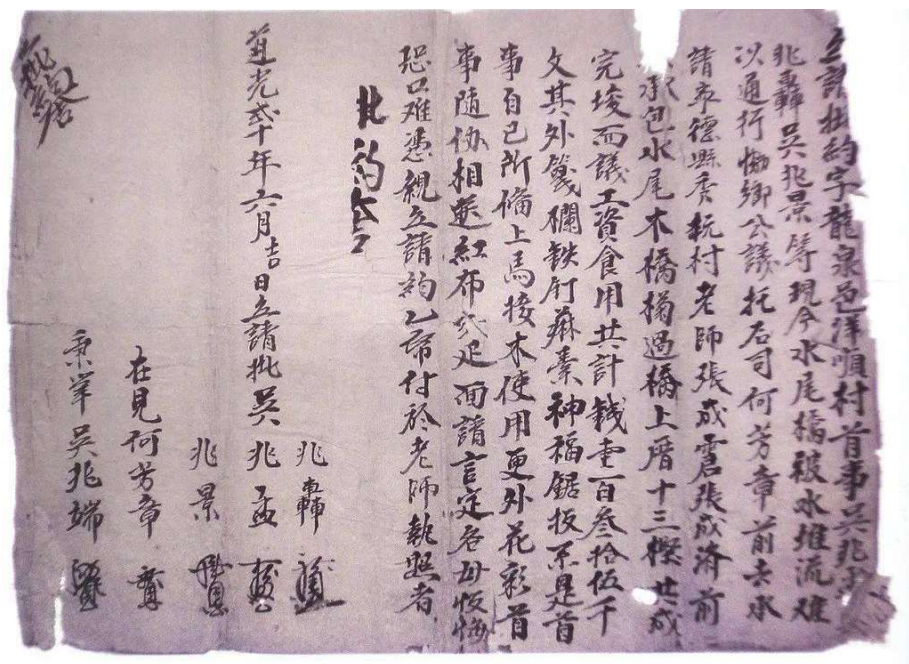 立請批約字龍泉邑洋順村首事吳兆孟
兆轟吳兆景等現今水尾橋被水堆流难
以通行慟鄉公議托石司何芳章前去承
請寧德縣秀坑村老師張成雲張成济前
承包水尾木橋樀過橋上厝十三樫廿成
完埈面議工資食用共計銭壹百叁拾伍千
文其外篾欄鉄釘蔴素神福鋸板系是首
事自已所備上馬接木使用更外花彩首
事隨侇相送紅布弍疋面請言定各毋恢悔
恐口难憑親立請約乙帋付於老師執照者
批約
道光弍十年六月吉日立請批吳 兆轟
兆孟
兆景
在見何芳章
秉筆吳兆端